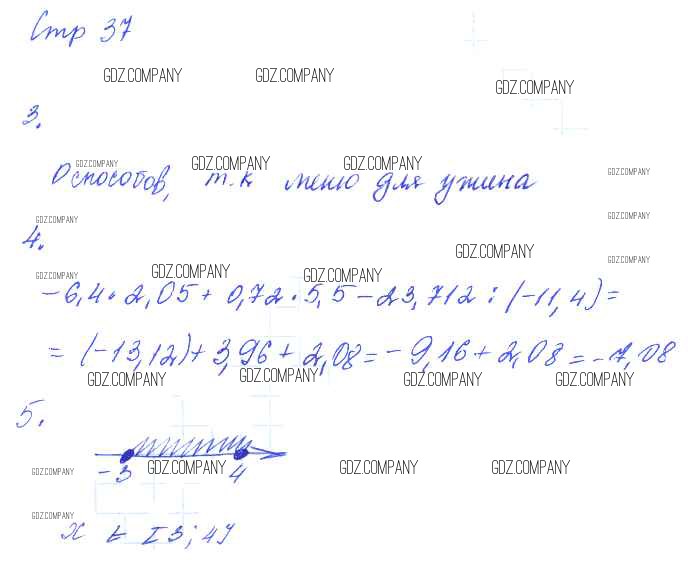 Стр 37
GDZ.COMPANY GDZ.COMPANY GDZ.COMPANY
3.
GDZ.COMPANY GDZ.COMPANY GDZ.COMPANY GDZ.COMPANY
0 способов, т.к меню для ужина
GDZ.COMPANY GDZ.COMPANY
4.
GDZ.COMPANY GDZ.COMPANY
GDZ.COMPANY GDZ.COMPANY GDZ.COMPANY
-6,4·2,05+0,72·5,5-23,712:(-11,4)=
=(-13,12)+3,96+2,08=-9,16+2,08=-7,08
GDZ.COMPANY GDZ.COMPANY GDZ.COMPANY GDZ.COMPANY
5.
-3 4
GDZ.COMPANY GDZ.COMPANY GDZ.COMPANY GDZ.COMPANY
GDZ.COMPANY
3; 4